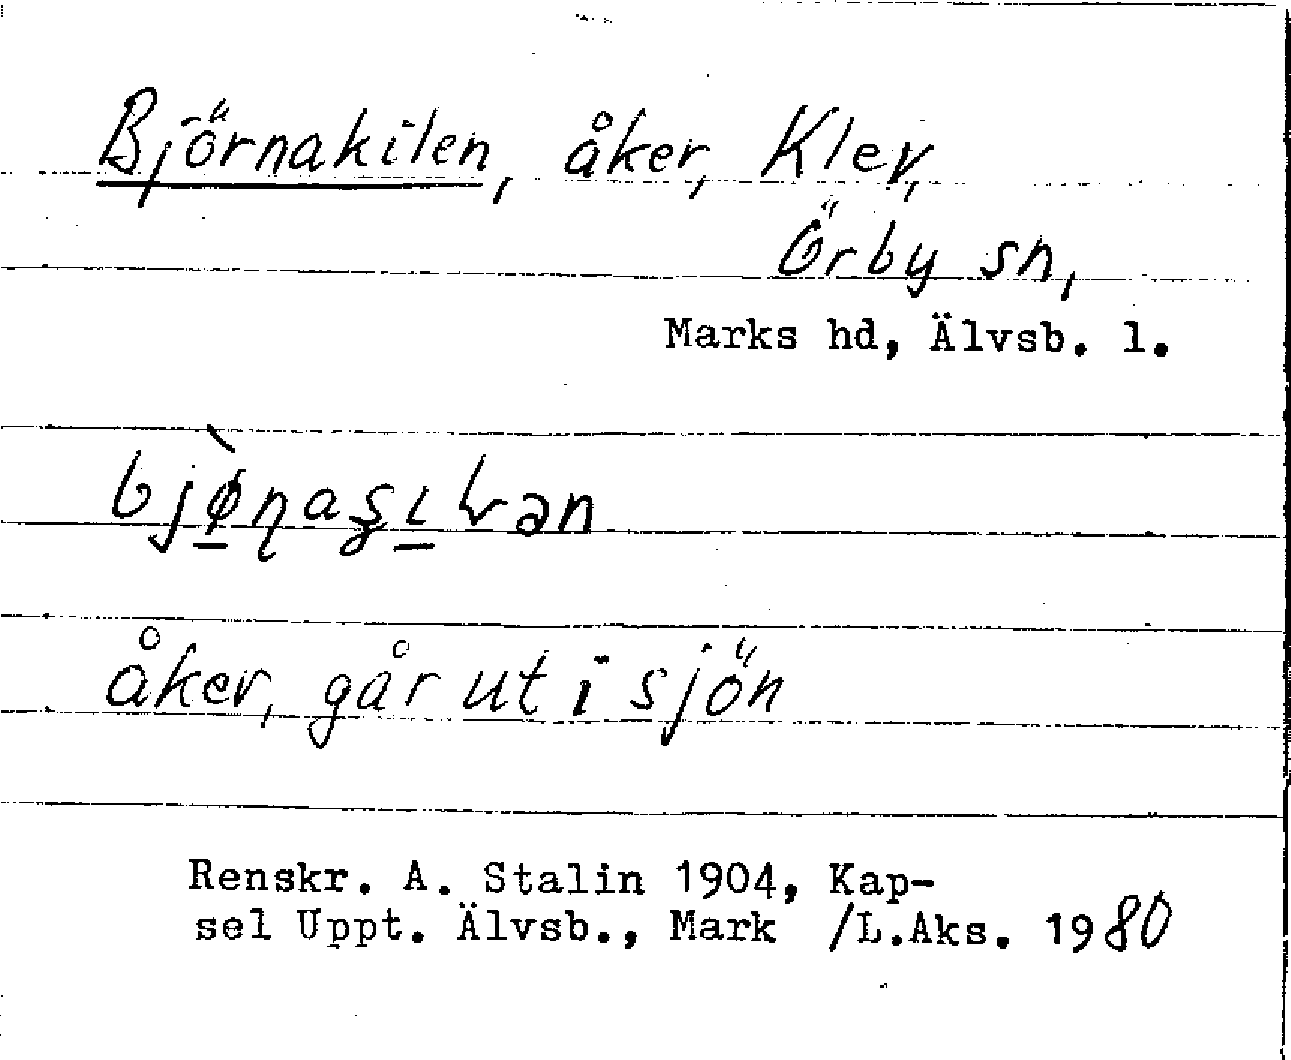 Björnakilen, åker, Klev,
Örby sn,
Marks hd, Älvsb. l.
åker, går ut i sjön
Renskr. A. Stalin 1904, Kap-
sel Uppt. Älvsb., Mark /L.Aks. 1980